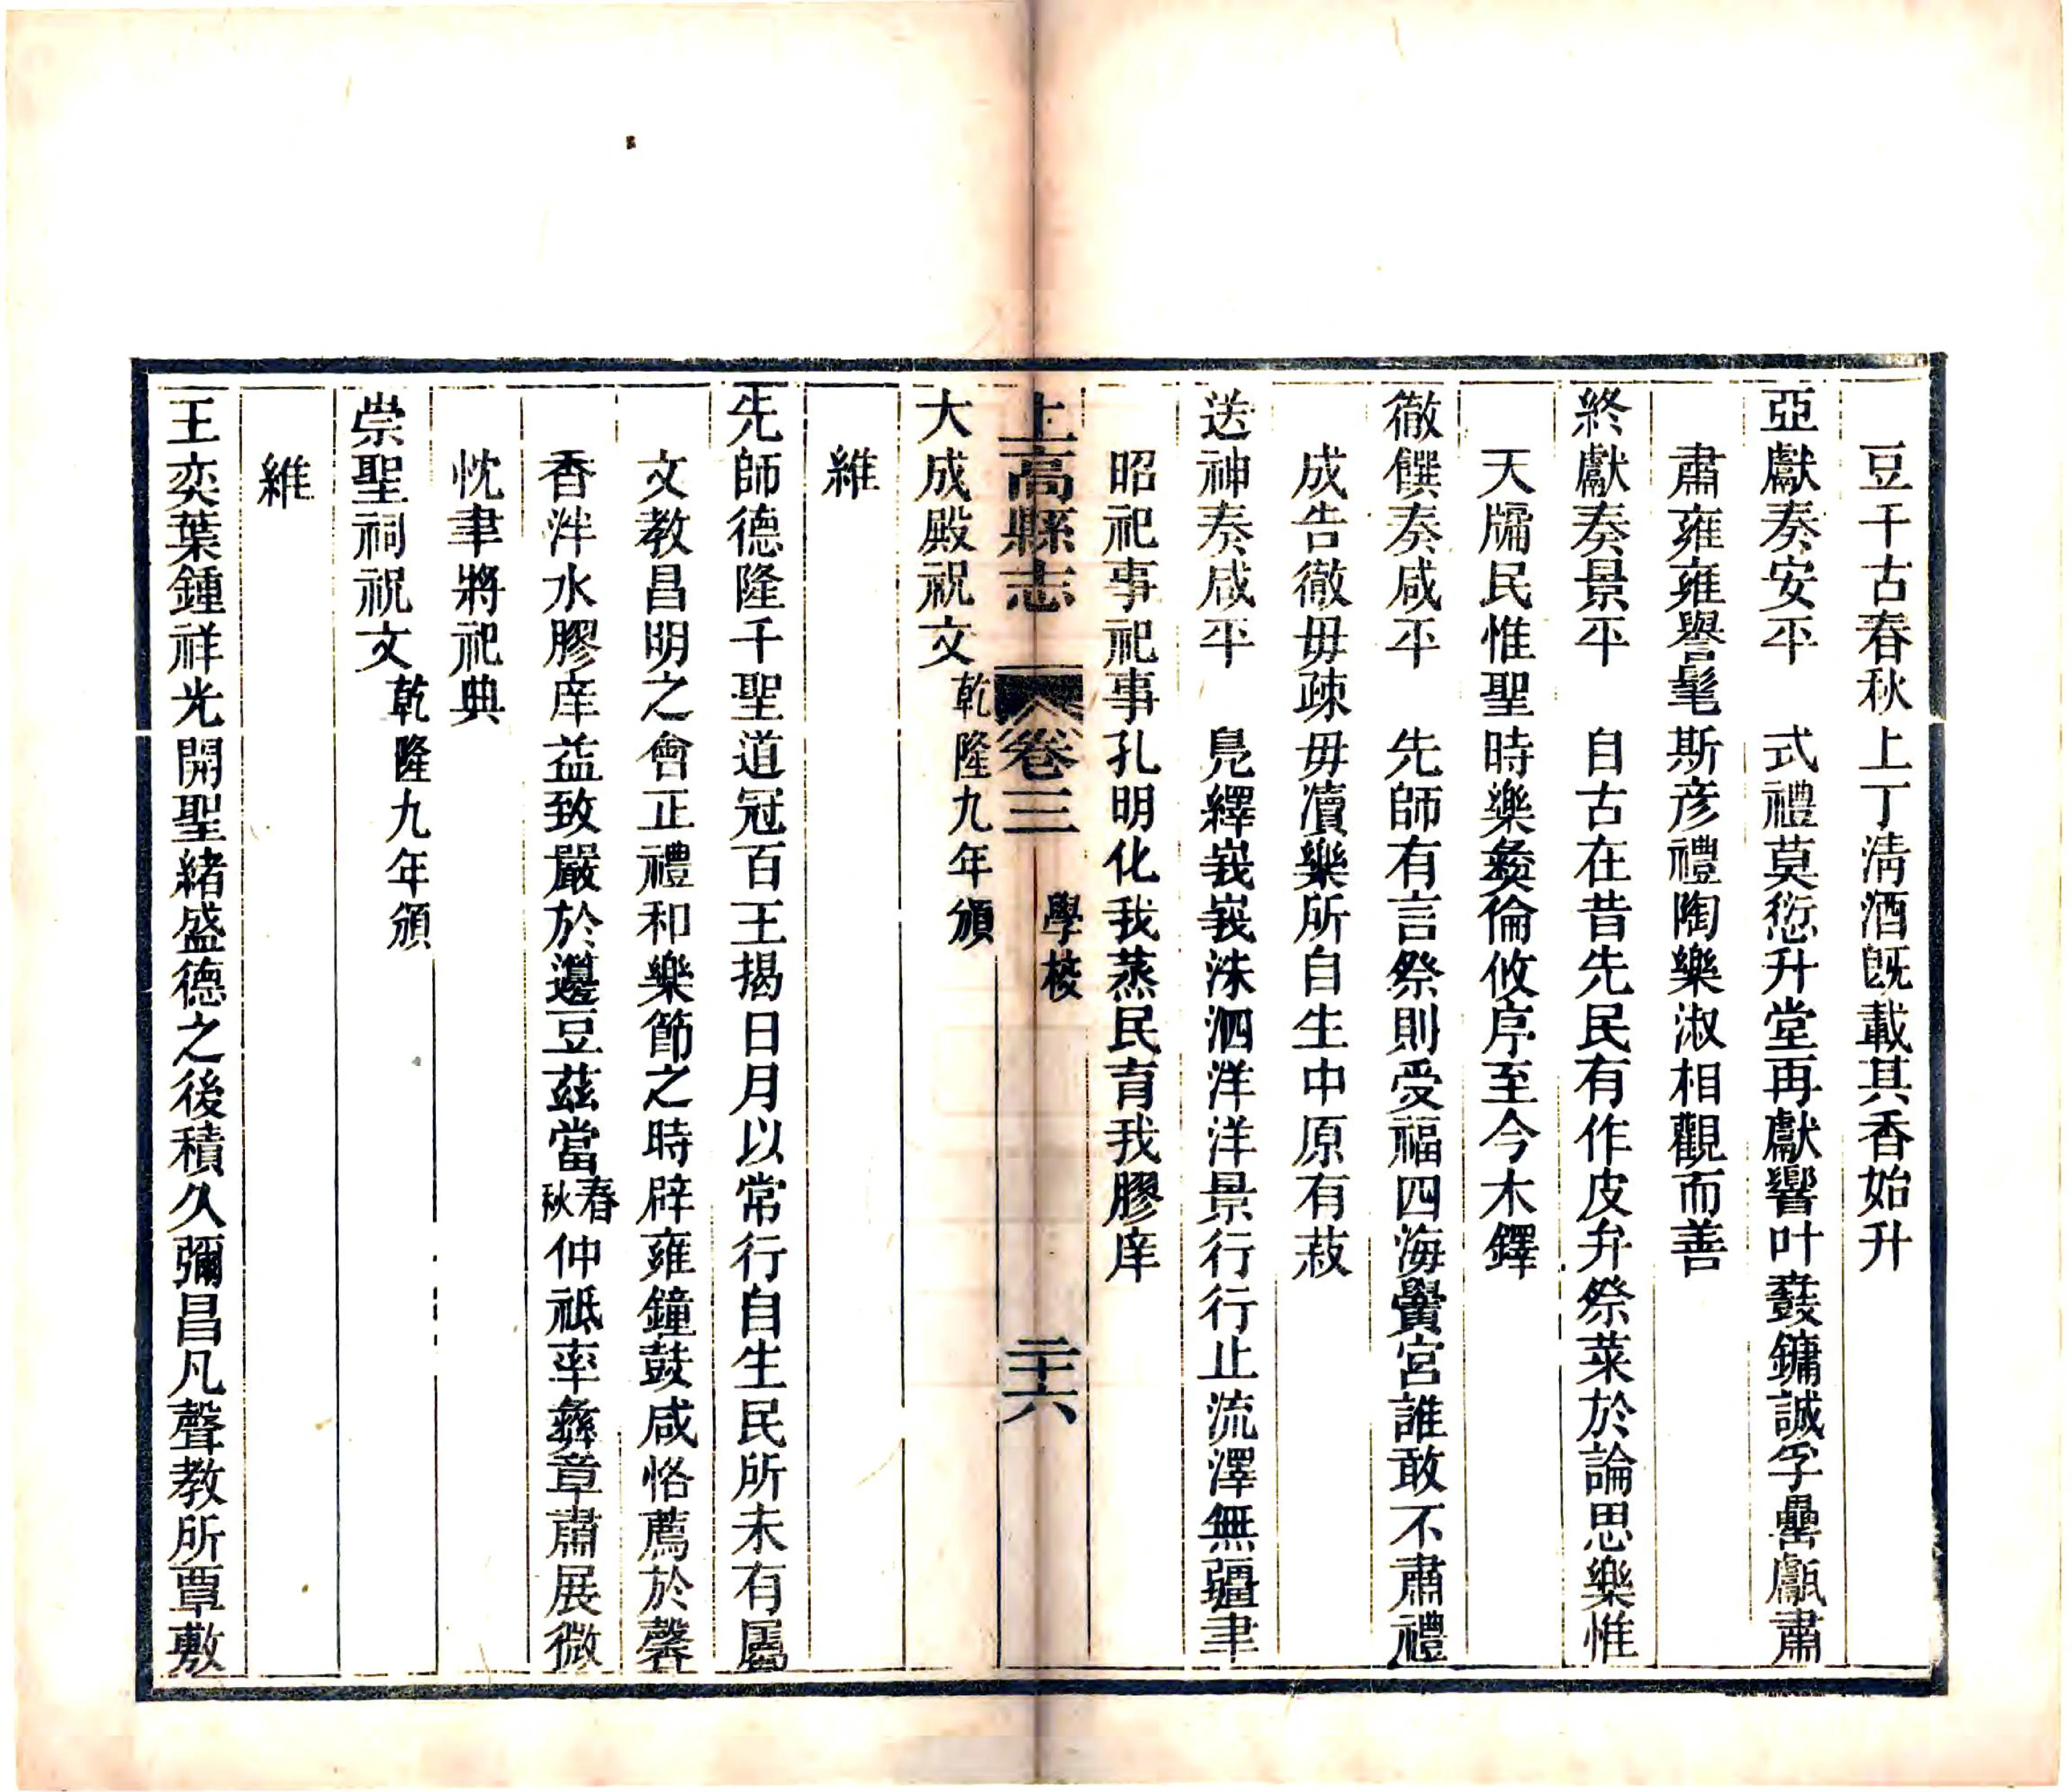 豆千古春秋上丁淸酒旣載其香始升
亞獻奏安平　式禮莫愆升堂再獻響叶鼖鏞誠孚罍甗肅
肅雍雍譽髦斯彦禮陶樂淑相觀而善
終獻奏景平　自古在昔先民有作皮弁祭菜於論思樂惟
天牖民惟聖時樂彝倫攸序至今木鐸
徹饌奏咸平　先師有言祭則受福四海黌宮誰敢不肅禮
成告徹毋疎毋瀆樂所自生中原有菽
送神奏咸平　鳧繹峩峩洙泗洋洋景行行止流澤無疆聿
昭祀事祀事孔明化我蒸民育我膠庠
上高縣志　卷三　學校　二十六
大成殿祝文　乾隆九年頒
維
先師德隆千聖道冠百王揭日月以常行自生民所未有屬
文教昌明之會正禮和樂節之時辟雍鐘鼓咸恪薦於馨
香泮水膠庠益致嚴於籩豆茲當春秋仲祗率彝章肅展微
忱聿將祀典
崇聖祠祝文　乾隆九年頒
維
王奕葉鍾祥光開聖緒盛德之後積久彌昌凡聲教所覃敷